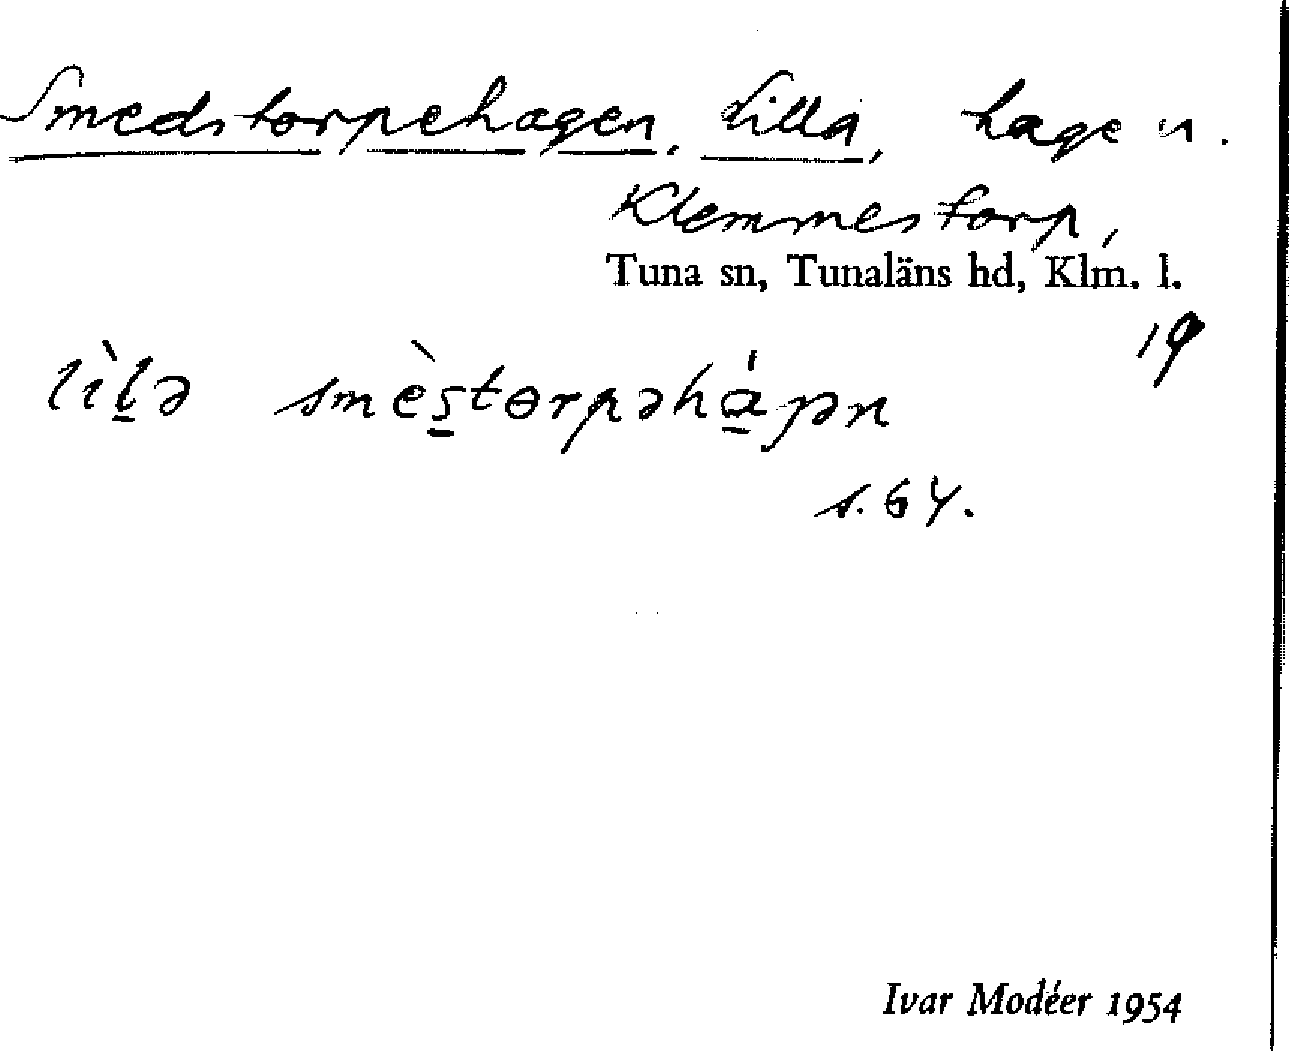 Smedstorpehagen, Lilla, hage n.
Klemmestorp,
Tuna sn, Tunaläns hd, Klm. l.
19
lìḻə smès̱tɵrpəhá̱ɲən
s. 64.
Ivar Modéer 1954